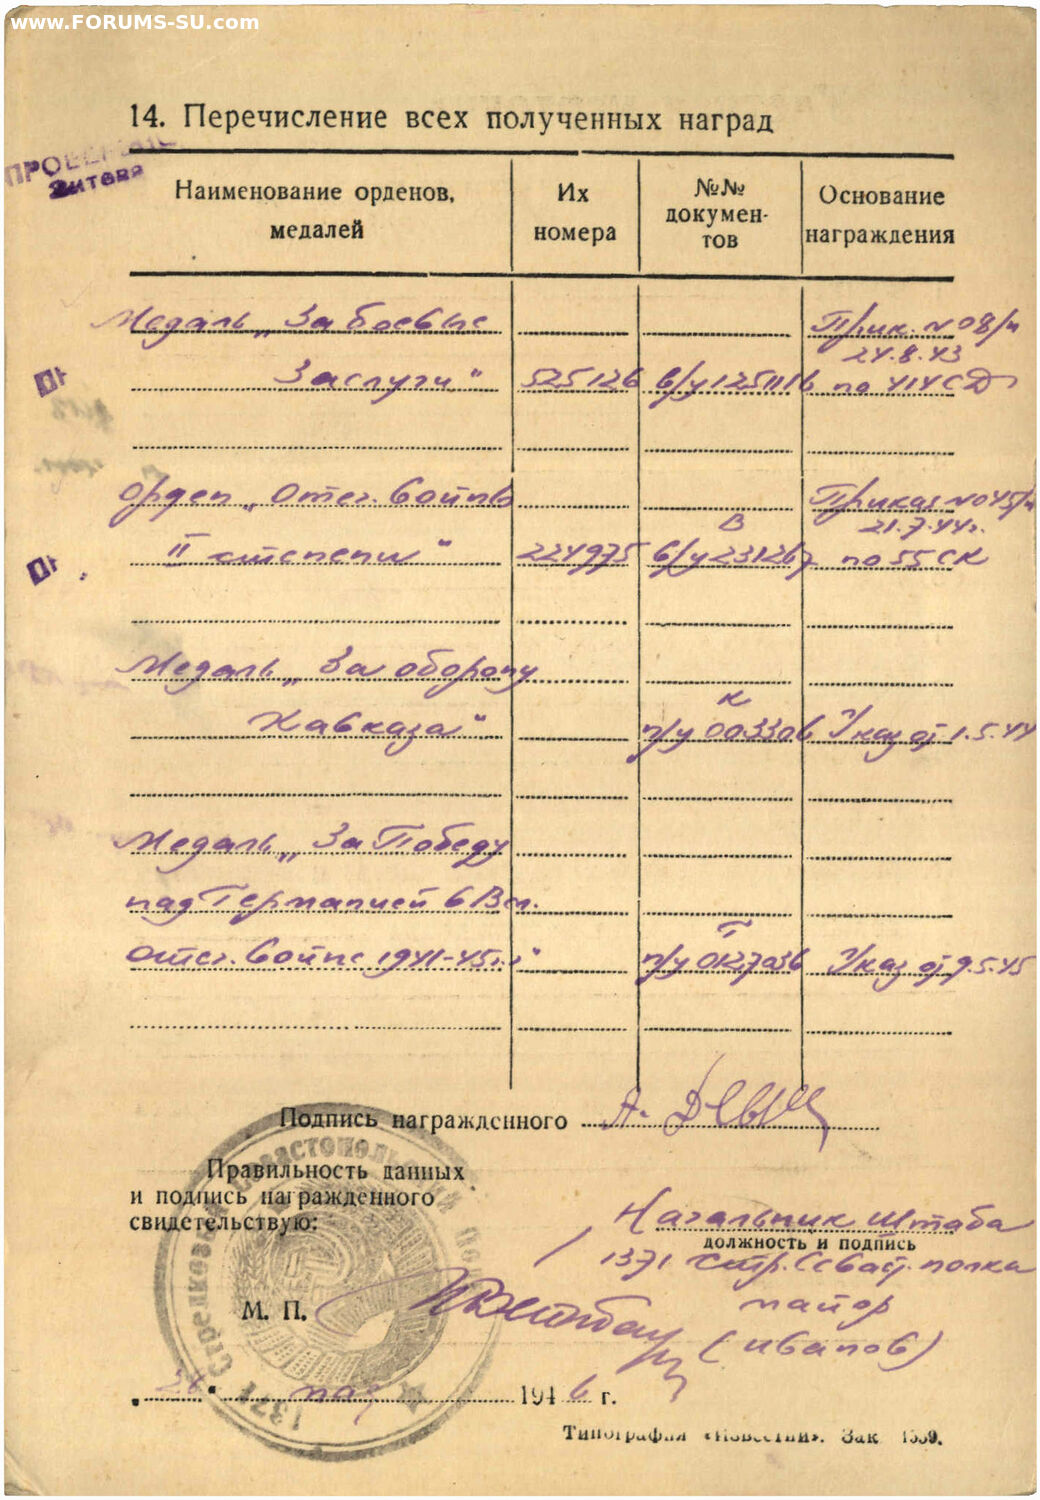 www.FORUMS-SU.com
14. Перечисление всех полученных наград
Наименование орденов, медалей
Их номера
№№ докумен-тов
Основание награждения
Медаль „За боевые Прик. №08/н
24.8.43
Заслуги" 525126 в/у 1251116 по 414 СД
Орден „Отеч. войны Приказ №045/н
В 21.7.44г.
II степени" 224975 в/у 231267 по 55 СК
Медаль „За оборону
К
Кавказа" п/у 003306 Указ от 1.5.44
Медаль „За Победу
над Германией в Вел.
Т
Отеч. войне 1941-45г.г." п/у 0127036 Указ от 9.5.45
Подпись награжденного А.
Правильность данных
и подпись награжденного
свидетельствую:
Начальник штаба
должность и подпись
1371 стр. Севаст. полка
М. П.
майор
(Иванов)
28 мая 1946 г.
1371 Стрелковый Севастопольский
Типография «Известия». Зак 1339.